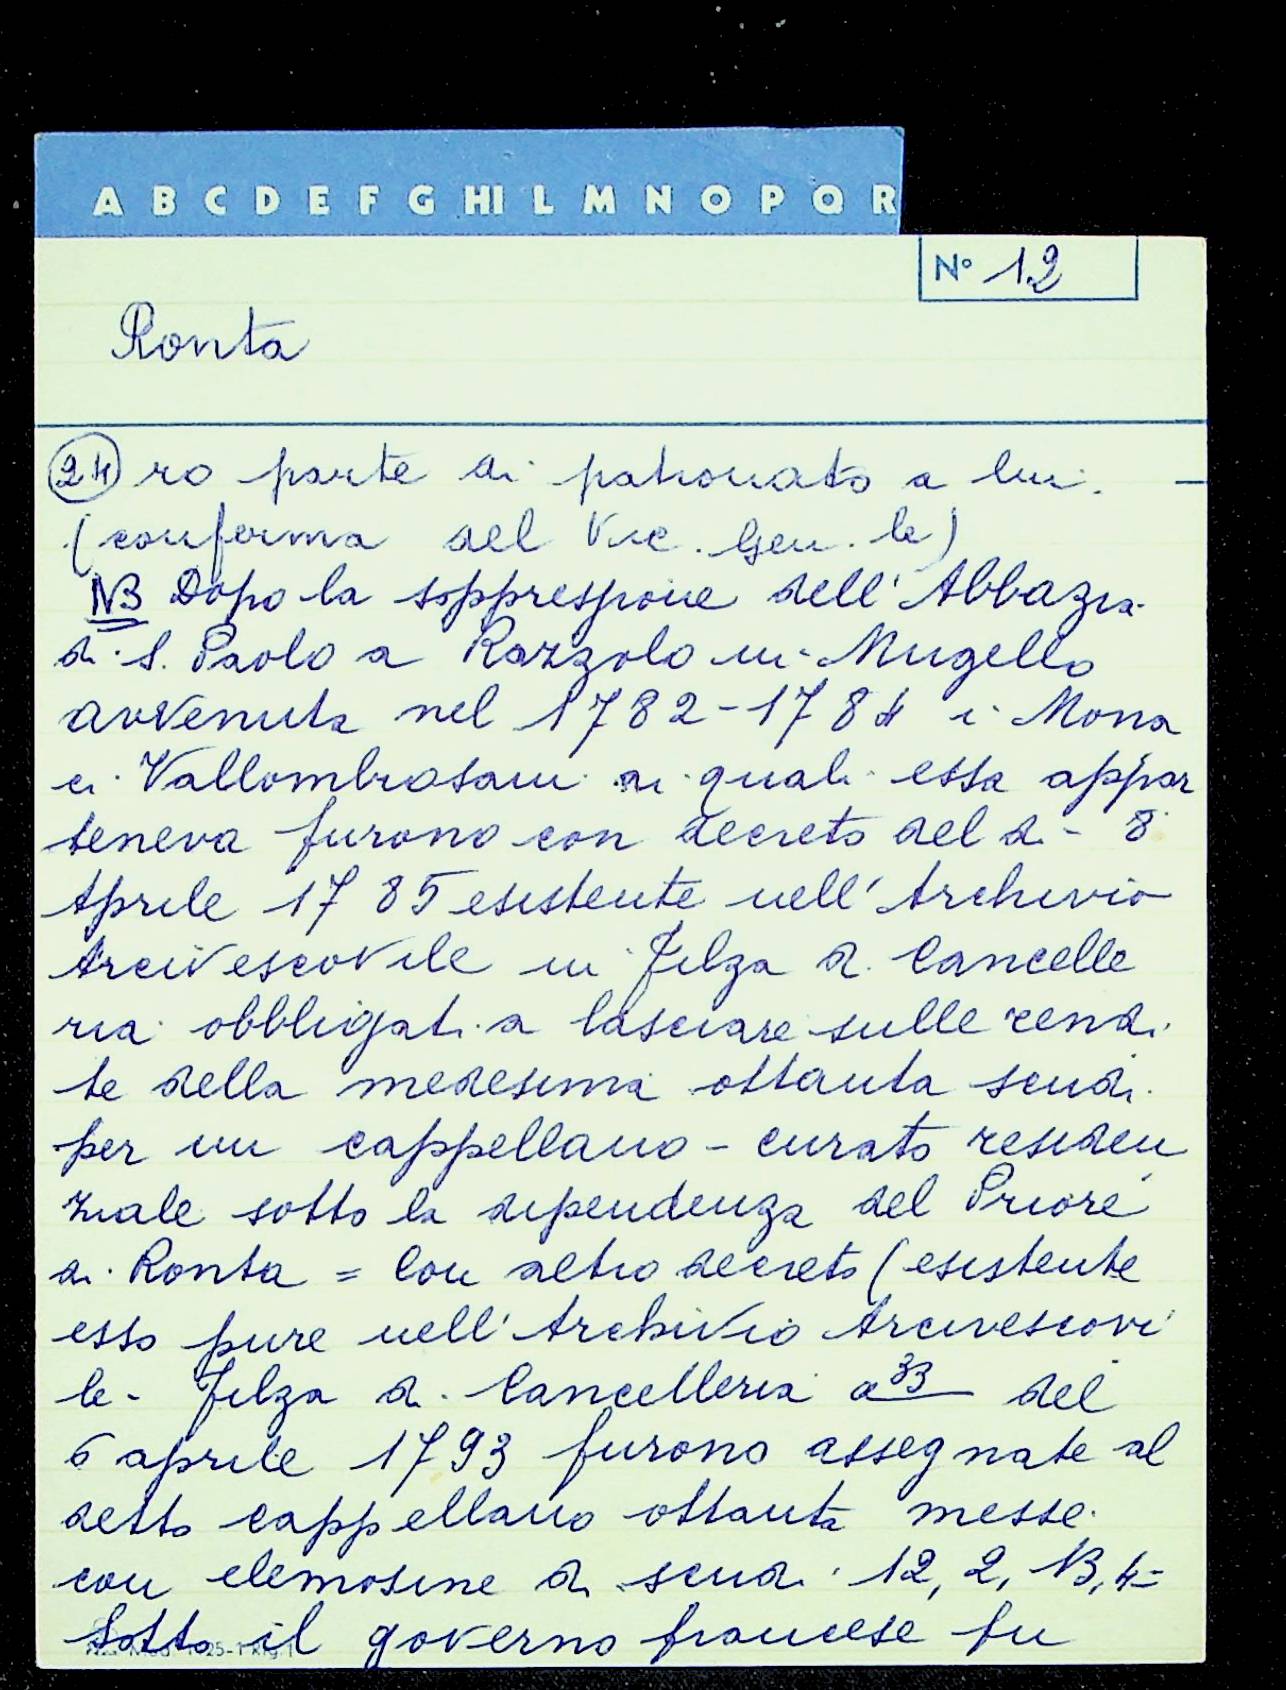 A B C D E F G HI L M N O P Q R
N° 12
Ronta
24 ro parte di patronato a lui. —
(conferma del Vic. Gen. le)
NB Dopo la soppressione dell'Abbazia
di S. Paolo a Razzolo in Mugello
avvenuta nel 1782-1784 i Mona
ci Vallombrosani ai quali essa appar
teneva furono con decreto del dì - 8
Aprile 1785 esistente nell'Archivio
Arcivescovile in Filza di Cancelle
ria obbligati a lasciare sulle rendi
te della medesima ottanta scudi
per un cappellano - curato residen
ziale sotto la dipendenza del Priore
di Ronta = Con altro decreto (esistente
esso pure nell'Archivio Arcivescovi
le - Filza di Cancelleria a 33 del
6 aprile 1793 furono assegnate al
detto cappellano ottanta messe
con elemosine di scudi 12, 2, 13, 4=
Sotto il governo francese fu